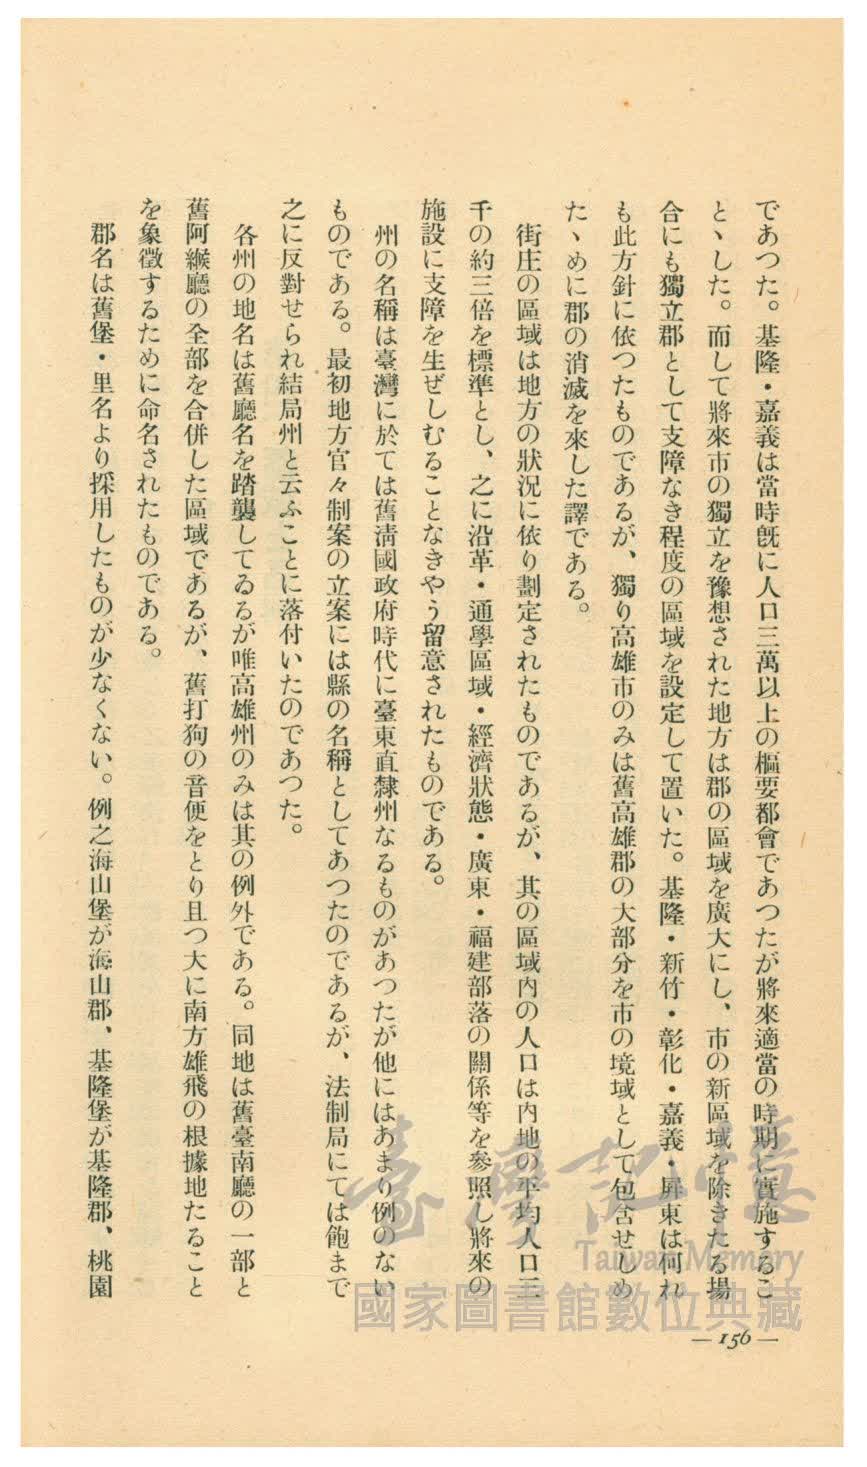 であつた。基隆・嘉義は當時既に人口三萬以上の樞要都會であつたが將來適當の時期に實施するこ
とゝした。而して將來市の獨立を豫想された地方は郡の區域を廣大にし、市の新區域を除きたる場
合にも獨立郡として支障なき程度の區域を設定して置いた。基隆・新竹・彰化・嘉義・屏東は何れ
も此方針に依つたものであるが、獨り高雄市のみは舊高雄郡の大部分を市の境域として包含せしめ
たゝめに郡の消滅を來した譯である。
街庄の區域は地方の狀況に依り劃定されたものであるが、其の區域內の人口は內地の平均人口三
千の約三倍を標準とし、之に沿革・通學區域・經濟狀態・廣東・福建部落の關係等を參照し將來の
施設に支障を生ぜしむることなきやう留意されたものである。
州の名稱は臺灣に於ては舊淸國政府時代に臺東直隸州なるものがあつたが他にはあまり例のない
ものである。最初地方官々制案の立案には縣の名稱としてあつたのであるが、法制局にては飽まで
之に反對せられ結局州と云ふことに落付いたのであつた。
各州の地名は舊廳名を踏襲してゐるが唯高雄州のみは其の例外である。同地は舊臺南廳の一部と
舊阿緱廳の全部を合併した區域であるが、舊打狗の音便をとり且つ大に南方雄飛の根據地たること
を象徵するために命名されたものである。
郡名は舊堡・里名より採用したものが少なくない。例之海山堡が海山郡、基隆堡が基隆郡、桃園
— 156 —
臺灣記憶
Taiwan Memory
國家圖書館數位典藏